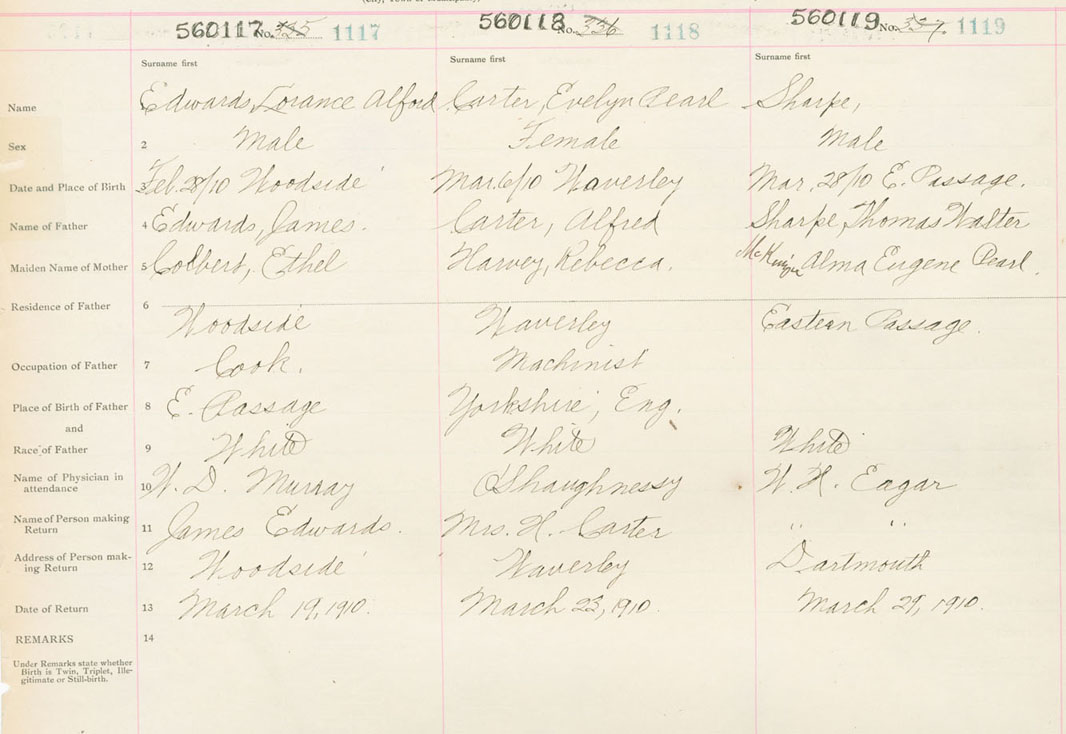 560117 No. 335 1117 560118 No. 336 1118 560119 No. 337 1119
Surname first Surname first Surname first
Name Edwards, Lorance Alford Carter, Evelyn Pearl Sharpe,
Sex 2 Male Female Male
Date and Place of Birth 3 Feb. 28/10 Woodside Mar. 6/10 Waverley Mar. 28/10 E. Passage.
Name of Father 4 Edwards, James. Carter, Alfred Sharpe, Thomas Walter
Maiden Name of Mother 5 Colbert, Ethel Harvey, Rebecca. Alma Eugene Pearl.
Residence of Father 6 Woodside Waverley Eastern Passage.
Occupation of Father 7 Cook. Machinist
Place of Birth of Father 8 E. Passage Yorkshire, Eng.
and
Race of Father 9 White White White
Name of Physician in
attendance 10 W. D. Murray O'Shaughnessy W. H. Eagar
Name of Person making
Return 11 James Edwards. Mrs. H. Carter " "
Address of Person mak-
ing Return 12 Woodside Waverley Dartmouth
Date of Return 13 March 19, 1910. March 23, 1910. March 29, 1910.
REMARKS 14
Under Remarks state whether
Birth is Twin, Triplet, Ille-
gitimate or Still-birth.